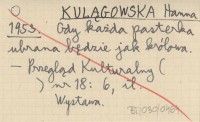 KULĄGOWSKA Hanna
1953. Gdy każda pasterka
ubrana będzie jak królowa.
- Przegląd Kulturalny (
) nr 18: 6, il.
Wystawa.